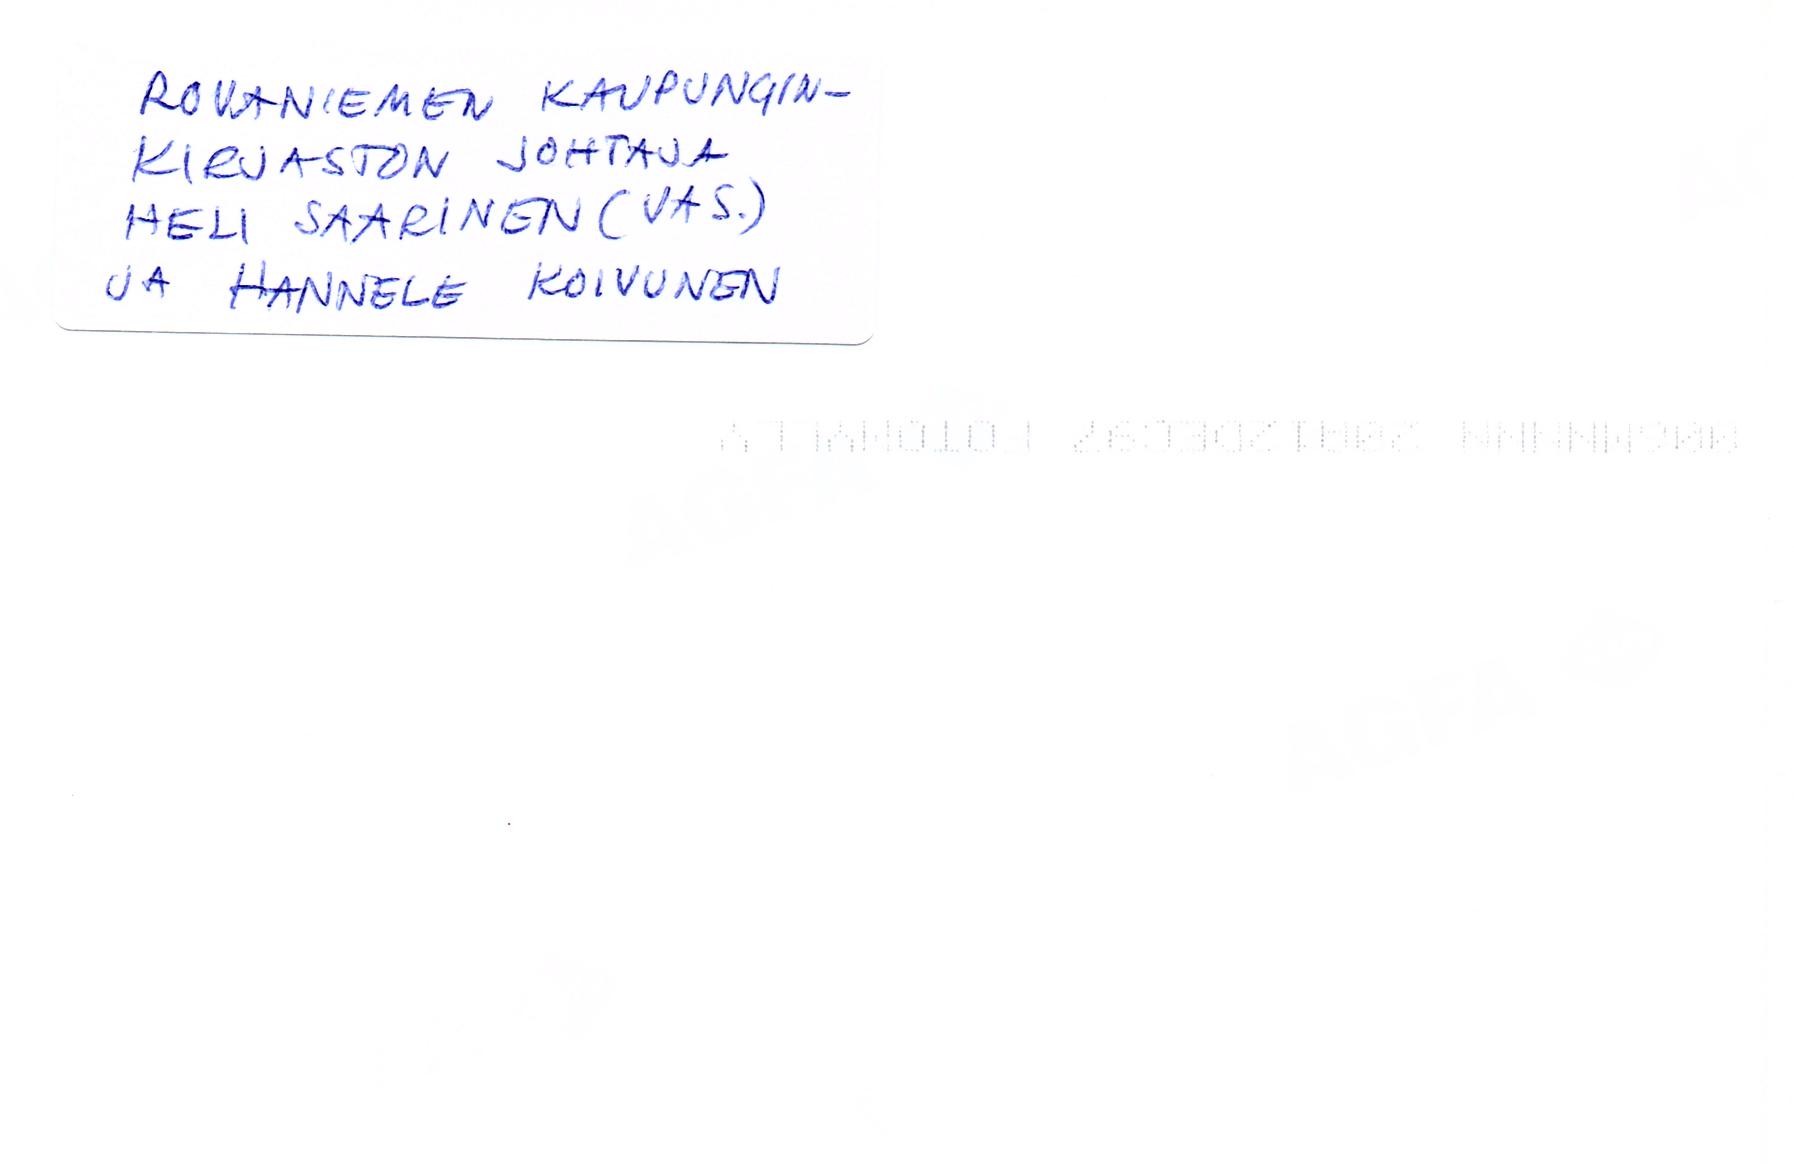 ROVANIEMEN KAUPUNGIN-
KIRJASTON JOHTAJA
HELI SAARINEN (VAS.)
JA HANNELE KOIVUNEN
AGFA
AGFA